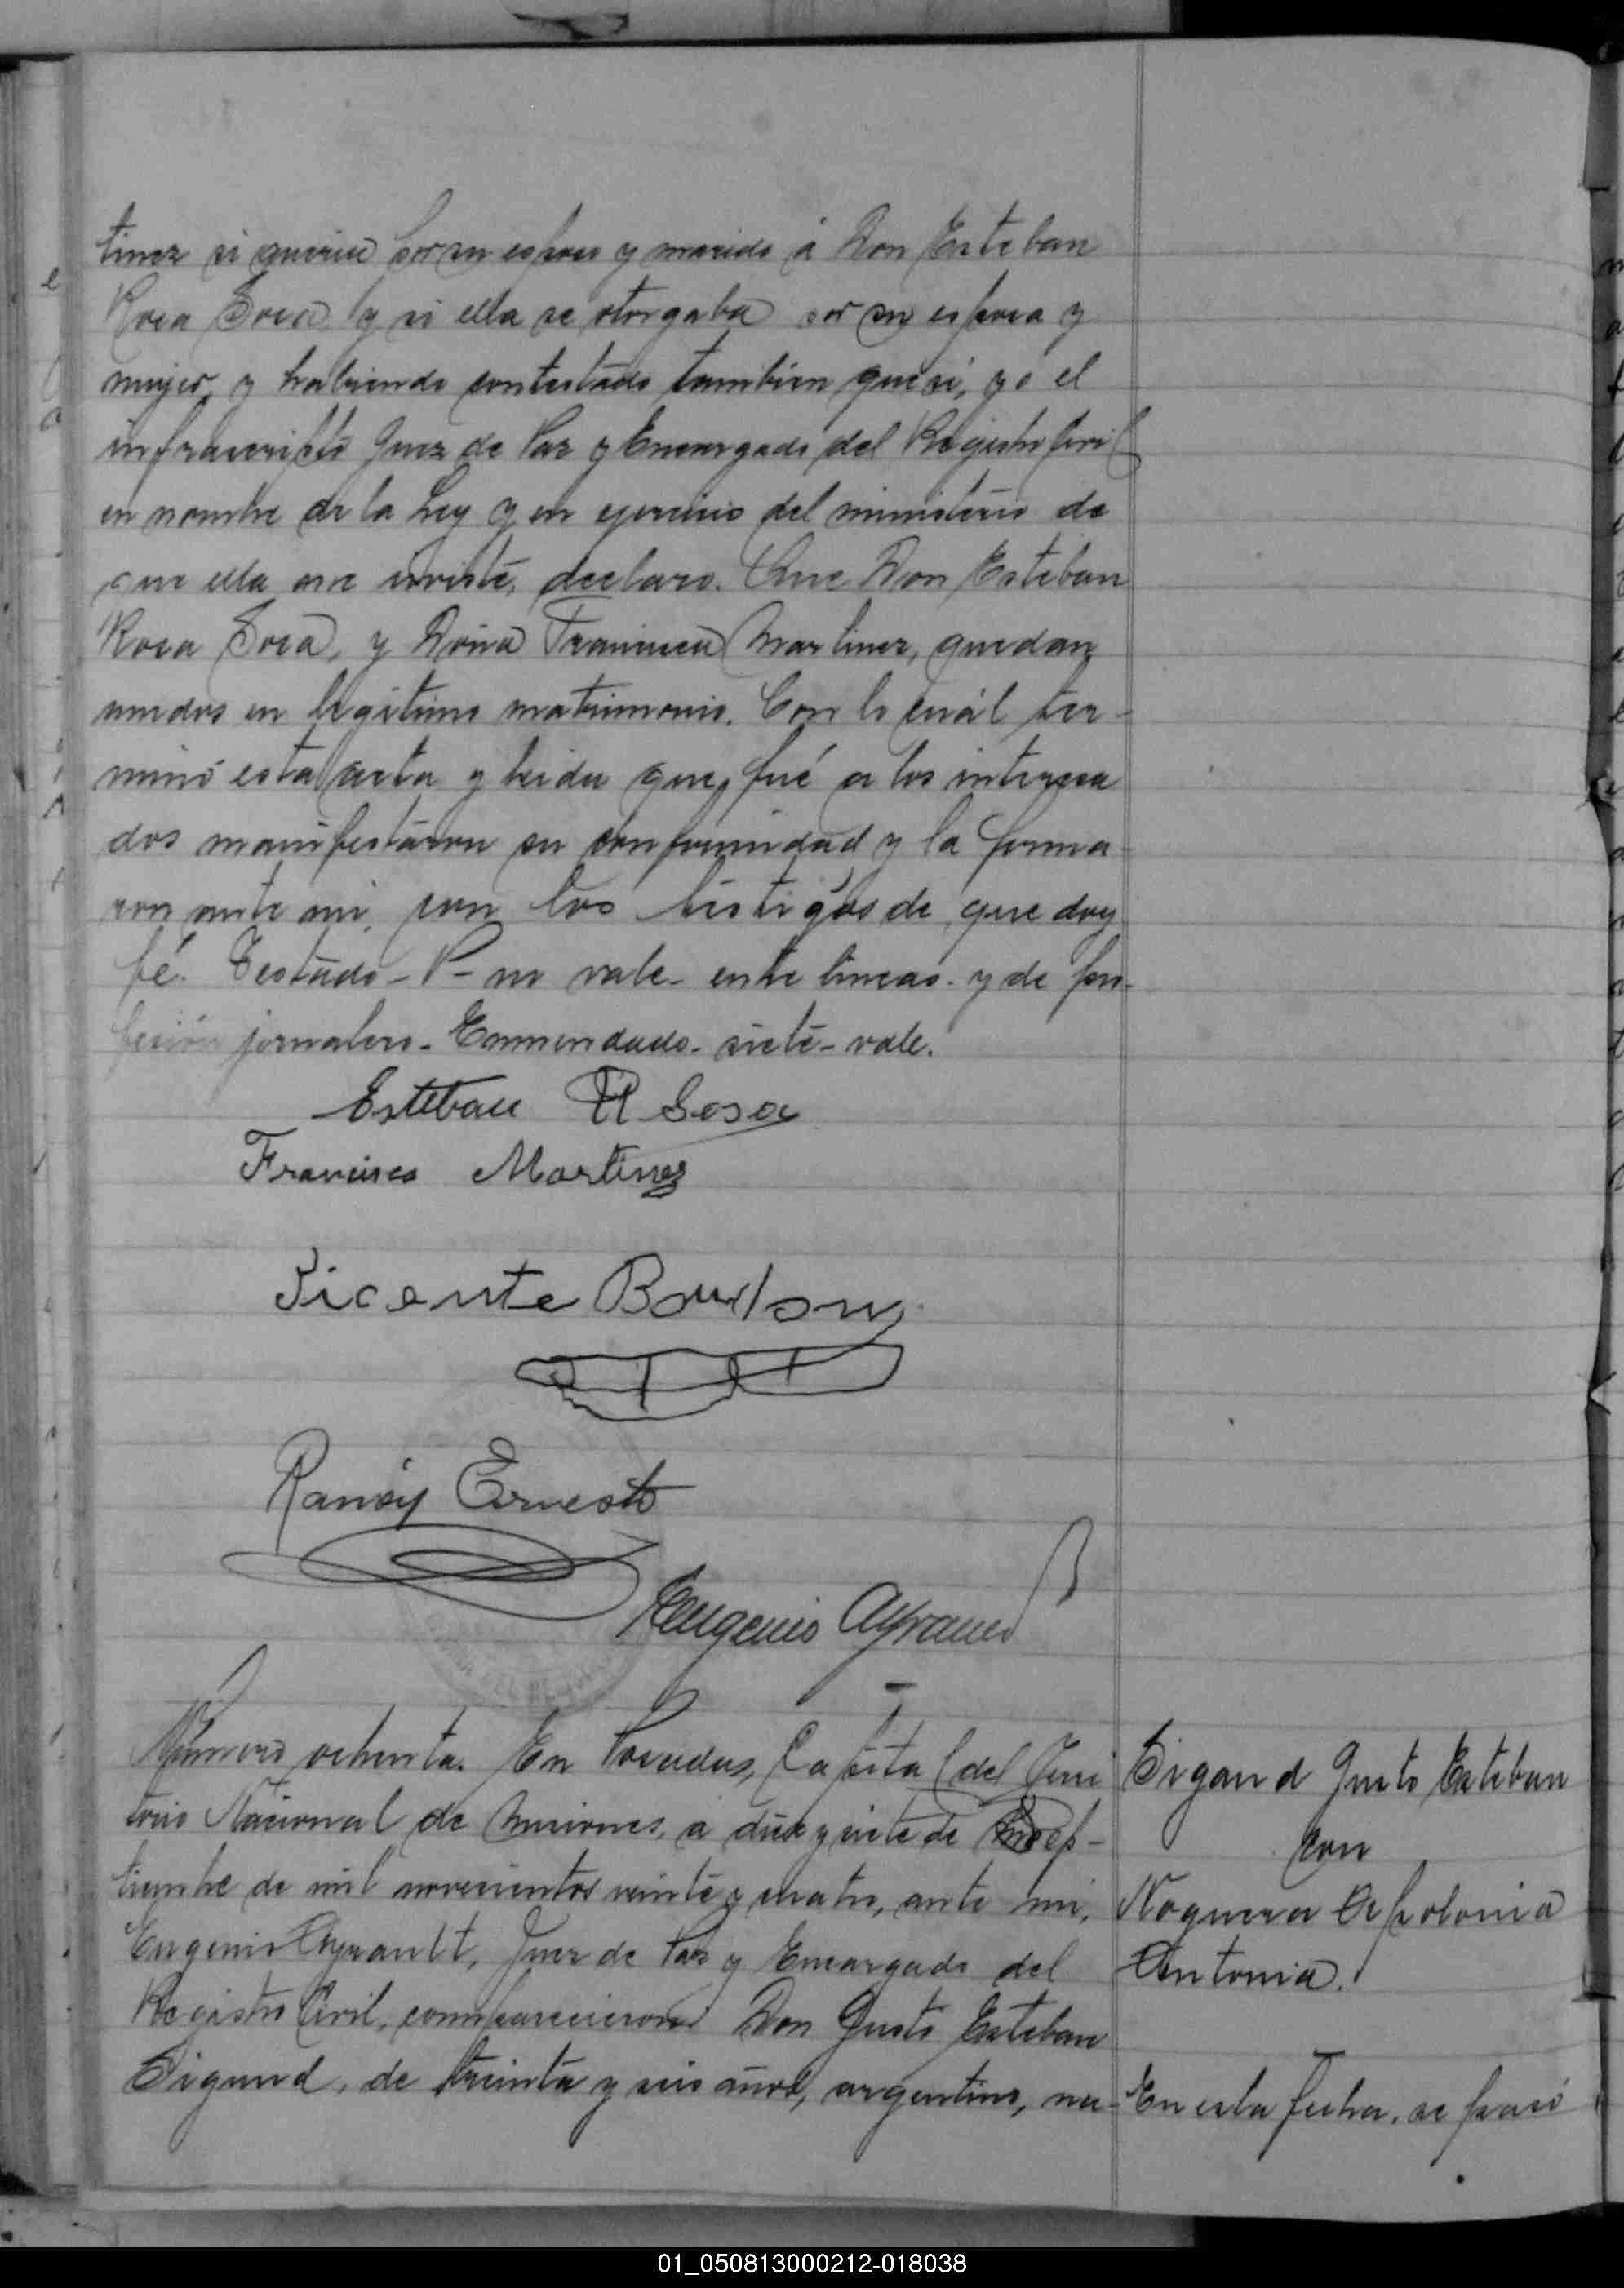 tinez si queria por su esposo y marido á Don Esteban
Rosa Sosa y si ella se otorgaba por su esposa y
mujer, y habiendo contestado tambien que sí, yó el
infrascripto Juez de Paz y Encargado del Registro Civil
en nombre de la Ley y en ejercicio del ministerio de
que ella me inviste, declaro. Que Don Esteban
Rosa Sosa, y Doña Francisca Martinez, quedan
unidos en legitimo matrimonio. Con lo cuál ter-
minó esta acta y leida que fué a los interesa
dos manifestaron su conformidad y la firma-
ron ante mi, con los testigos de que doy
fé. Testado - P - no vale - entre lineas - y de pro-
fesión jornalero - Enmendado - siete - vale.
Esteban R Sosa
Francisca Martinez
Vicente
Ernesto
Eugenio Ayrault
Número ochenta. En Posadas, Capital del Terri
torio Nacional de Misiones, á diez y siete de Sep-
tiembre de mil novecientos veinte y cuatro, ante mi,
Eugenio Ayrault, Juez de Paz y Encargado del
Registro Civil, comparecieron Don Justo Esteban
Sigund, de treinta y seis años, argentino, na-
Sigand Justo Esteban
con
Noguera Apolonia
Antonia.
En esta fecha, se pasó
01_050813000212-018038